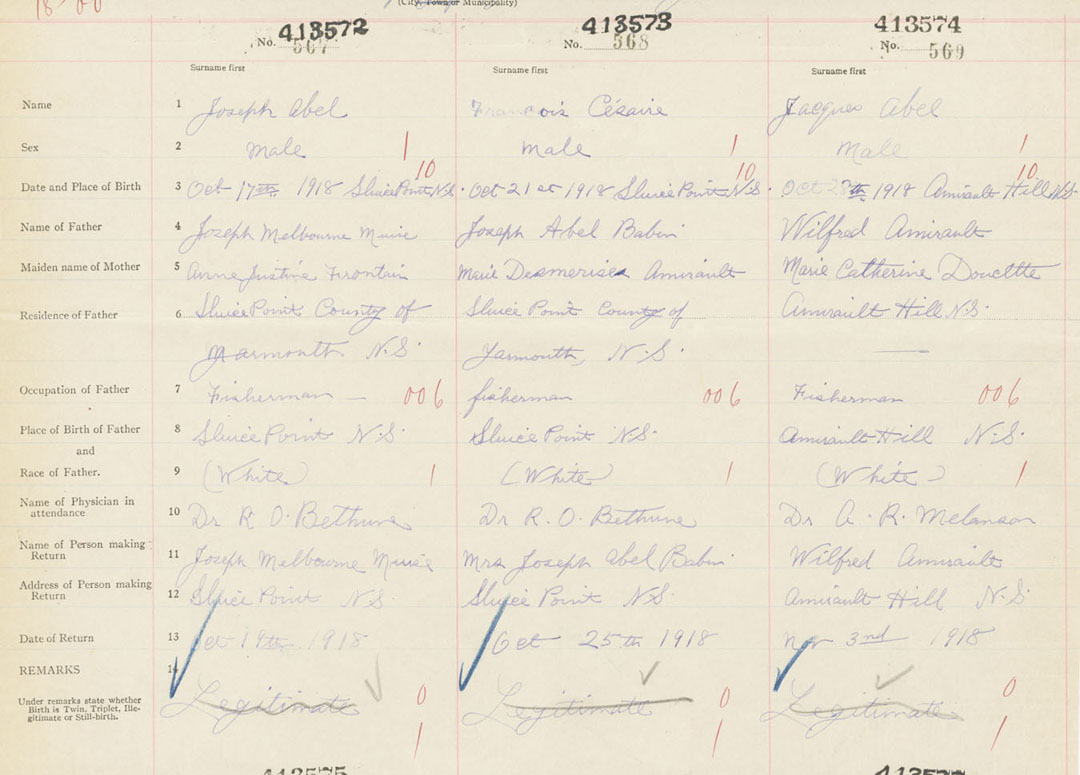 18-00
(City, Town or Municipality)
413572 413573 413574
No. 567 No. 568 No. 569
Surname first Surname first Surname first
Name 1 Joseph Abel François Césaire Jacques Abel
Sex 2 Male 1 Male 1 Male 1
10 10 10
Date and Place of Birth 3 Oct 17th 1918 Sluice Point N.S. Oct 21st 1918 Sluice Point N.S. Oct 28th 1918 Amirault Hill N.S.
Name of Father 4 Joseph Melbourne Muise Joseph Abel Babin Wilfred Amirault
Maiden name of Mother 5 Anne Justine Frontain Marie Desmerises Amirault Marie Catherine Doucette
Residence of Father 6 Sluice Point County of Sluice Point County of Amirault Hill N.S.
Yarmouth N.S. Yarmouth, N.S. —
Occupation of Father 7 Fisherman — 006 fisherman 006 Fisherman 006
Place of Birth of Father 8 Sluice Point N.S. Sluice Point N.S. Amirault Hill N.S.
and
Race of Father. 9 (White) 1 (White) 1 (White) 1
Name of Physician in
attendance 10 Dr R. O. Bethune Dr R. O. Bethune Dr A. R. Melanson
Name of Person making
Return 11 Joseph Melbourne Muise Mrs Joseph Abel Babin Wilfred Amirault
Address of Person making
Return 12 Sluice Point N.S. Sluice Point N.S. Amirault Hill N.S.
Date of Return 13 Oct 19th 1918 Oct 25th 1918 Nov 3rd 1918
REMARKS 14
Under remarks state whether
Birth is Twin, Triplet, Ille-
gitimate or Still-birth.
Legitimate 0 Legitimate 0 Legitimate 0
1 1 1
413575 413577